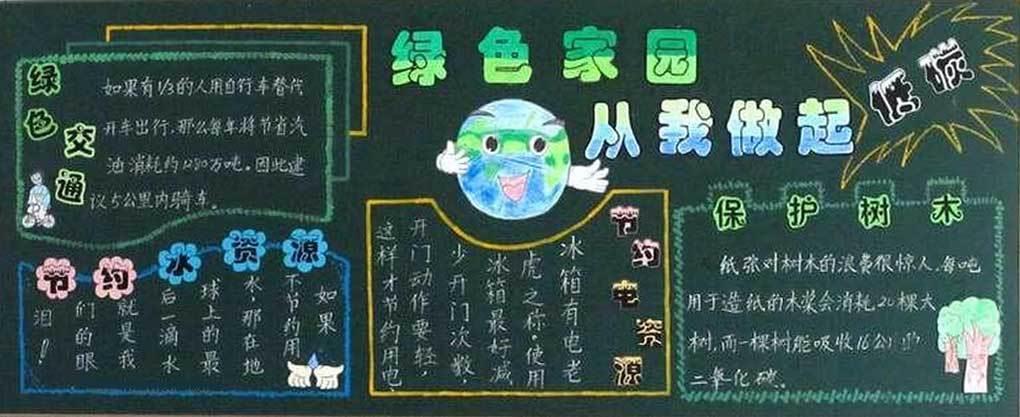 绿色家园
从我做起
绿色交通
如果有1/3的人用自行车替代
开车出行,那么每年将节省汽
油消耗约1280万吨。因此建
议5公里内骑车。
节约水资源
如果
不节约用
水,那在地
球上的最
后一滴水
就是我
们的眼
泪!
节约电资源
冰箱有电老
虎之称。使用
冰箱最好减
少开门次数,
开门动作要轻,
这样才节约用电
保护树木
纸张对树木的浪费很惊人,每吨
用于造纸的木浆会消耗20棵大
树,而一棵树能吸收16公斤的
二氧化碳。